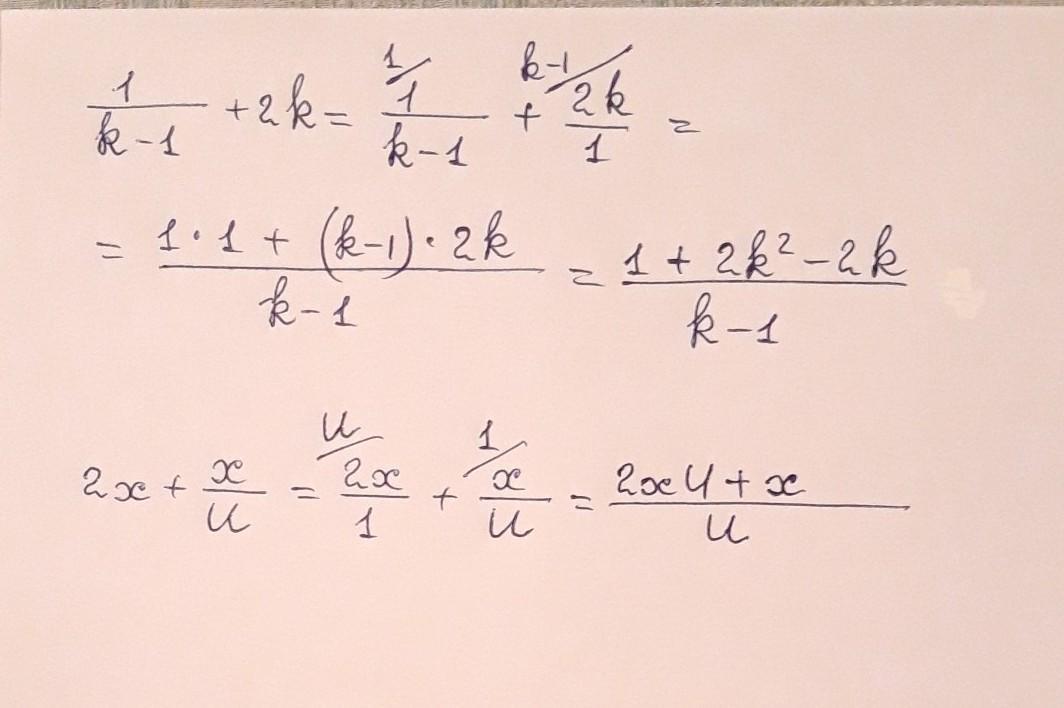 1/(k-1) + 2k = 1/ 1/(k-1) + k-1/ 2k/1 =
= (1·1 + (k-1)·2k)/(k-1) = (1 + 2k² - 2k)/(k-1)
2x + x/u = u/ 2x/1 + 1/ x/u = (2xu + x)/u